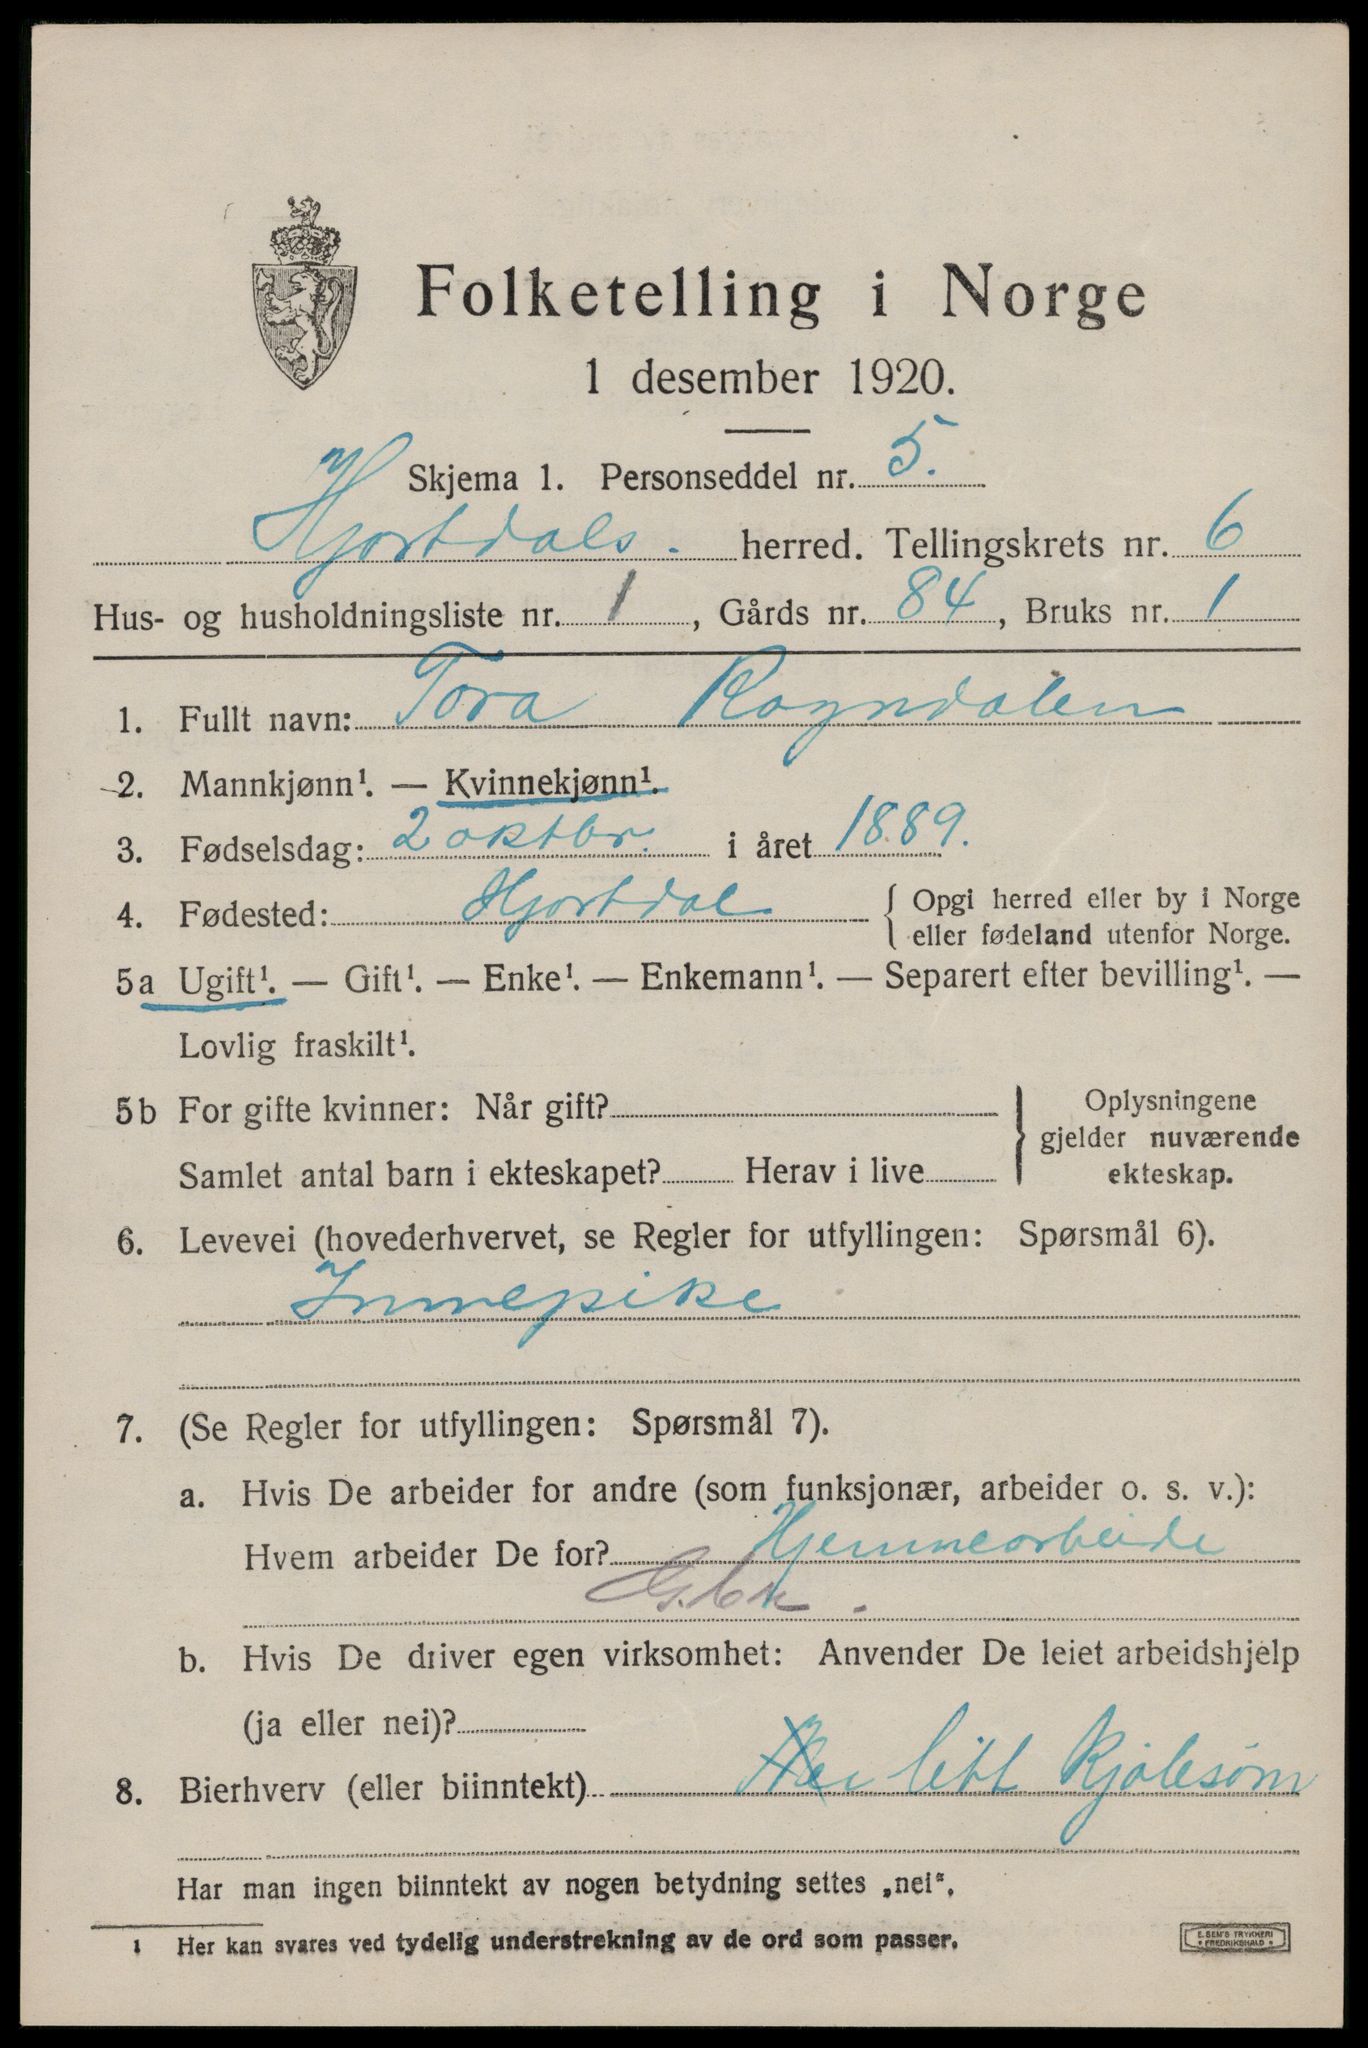 Folketelling i Norge
1 desember 1920.
Skjema 1. Personseddel nr. 5.
Hjartdals. herred. Tellingskrets nr. 6
Hus- og husholdningsliste nr. 1, Gårds nr. 84, Bruks nr. 1
1. Fullt navn: Tora Rogndalen
2. Mannkjønn¹. — Kvinnekjønn¹.
3. Fødselsdag: 2 oktbr. i året 1889.
4. Fødested: Hjartdal { Opgi herred eller by i Norge
eller fødeland utenfor Norge.
5a Ugift¹. — Gift¹. — Enke¹. — Enkemann¹. — Separert efter bevilling¹. —
Lovlig fraskilt¹.
5b For gifte kvinner: Når gift? } Oplysningene
gjelder nuværende
Samlet antal barn i ekteskapet? Herav i live ekteskap.
6. Levevei (hovederhvervet, se Regler for utfyllingen: Spørsmål 6).
Innepike
7. (Se Regler for utfyllingen: Spørsmål 7).
a. Hvis De arbeider for andre (som funksjonær, arbeider o. s. v.):
Hvem arbeider De for? Hjemmearbeide
b. Hvis De driver egen virksomhet: Anvender De leiet arbeidshjelp
(ja eller nei)?
8. Bierhverv (eller biinntekt) litt kjolesøm
Har man ingen biinntekt av nogen betydning settes „nei“.
1 Her kan svares ved tydelig understrekning av de ord som passer.
E. SEM'S TRYKKERI
FREDRIKSHALD